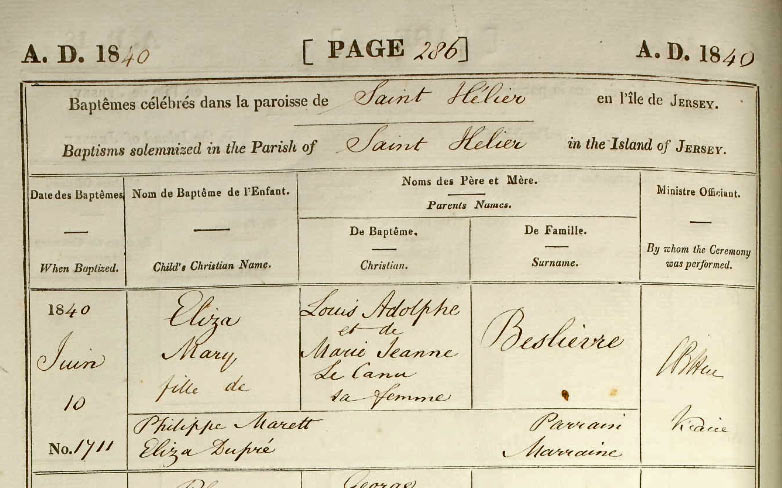 A. D. 1840 [ PAGE 286 ] A. D. 1840
Baptêmes célébrés dans la paroisse de Saint Hélier en l'île de JERSEY.
Baptisms solemnized in the Parish of Saint Helier in the Island of JERSEY.
Date des Baptêmes.
When Baptized.
Nom de Baptême de l'Enfant.
Child's Christian Name.
Noms des Père et Mère.
Parents Names.
De Baptême.
Christian.
De Famille.
Surname.
Ministre Officiant.
By whom the Ceremony
was performed.
1840
Juin
10
No. 1711
Eliza
Mary
fille de
Louis Adolphe
et de
Marie Jeanne
Le Canu
sa femme
Beslièvre
Philippe Marett Parrain
Eliza Dupré Marraine
George